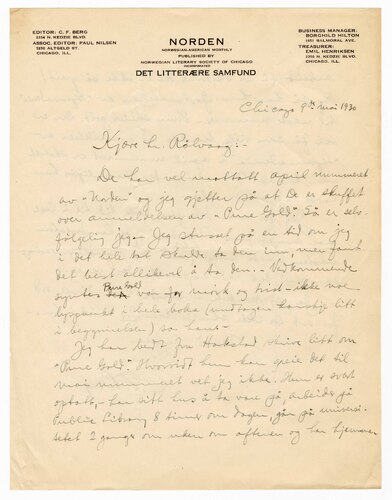 EDITOR: C. F. BERG
2334 N. KEDZIE BLVD.
ASSOC. EDITOR: PAUL NILSEN
1250 ALTGELD ST.
CHICAGO, ILL.
NORDEN
NORWEGIAN-AMERICAN MONTHLY
PUBLISHED BY
NORWEGIAN LITERARY SOCIETY OF CHICAGO
INCORPORATED
DET LITTERÆRE SAMFUND
BUSINESS MANAGER:
BORGHILD HILTON
1651 BALMORAL AVE.
TREASURER:
EMIL HENRIKSEN
CHICAGO, ILL.
Chicago 9de mai 1930
Kjære hr. Rølvaag:-
De har vel mottatt april nummeret
av "Norden" og jeg gjetter på at De er skuffet
over anmeldelsen av "Pure Gold". Så er selv-
følgelig jeg. Jeg stusset på en tid om jeg
i det hele tatt skulde ta den inn, men fant
det best allikevel å ta den. Vedkommende
syntes Pure Gold var for mørk og trist - ikke noe
i hele boka (undtagen kanskje litt
i begynnelsen) sa hans
Jeg har bedt fru Hakstad skrive litt om
"Pure Gold". Hvorvidt hun kan greie det til
mai nummeret vet jeg ikke. Hun er svært
optatt, - har sitt hus å ta vare på, arbeider på
Public Library 8 timer om dagen, går på universi-
tetet 2 ganger om uken om aftenen og har hjemmet